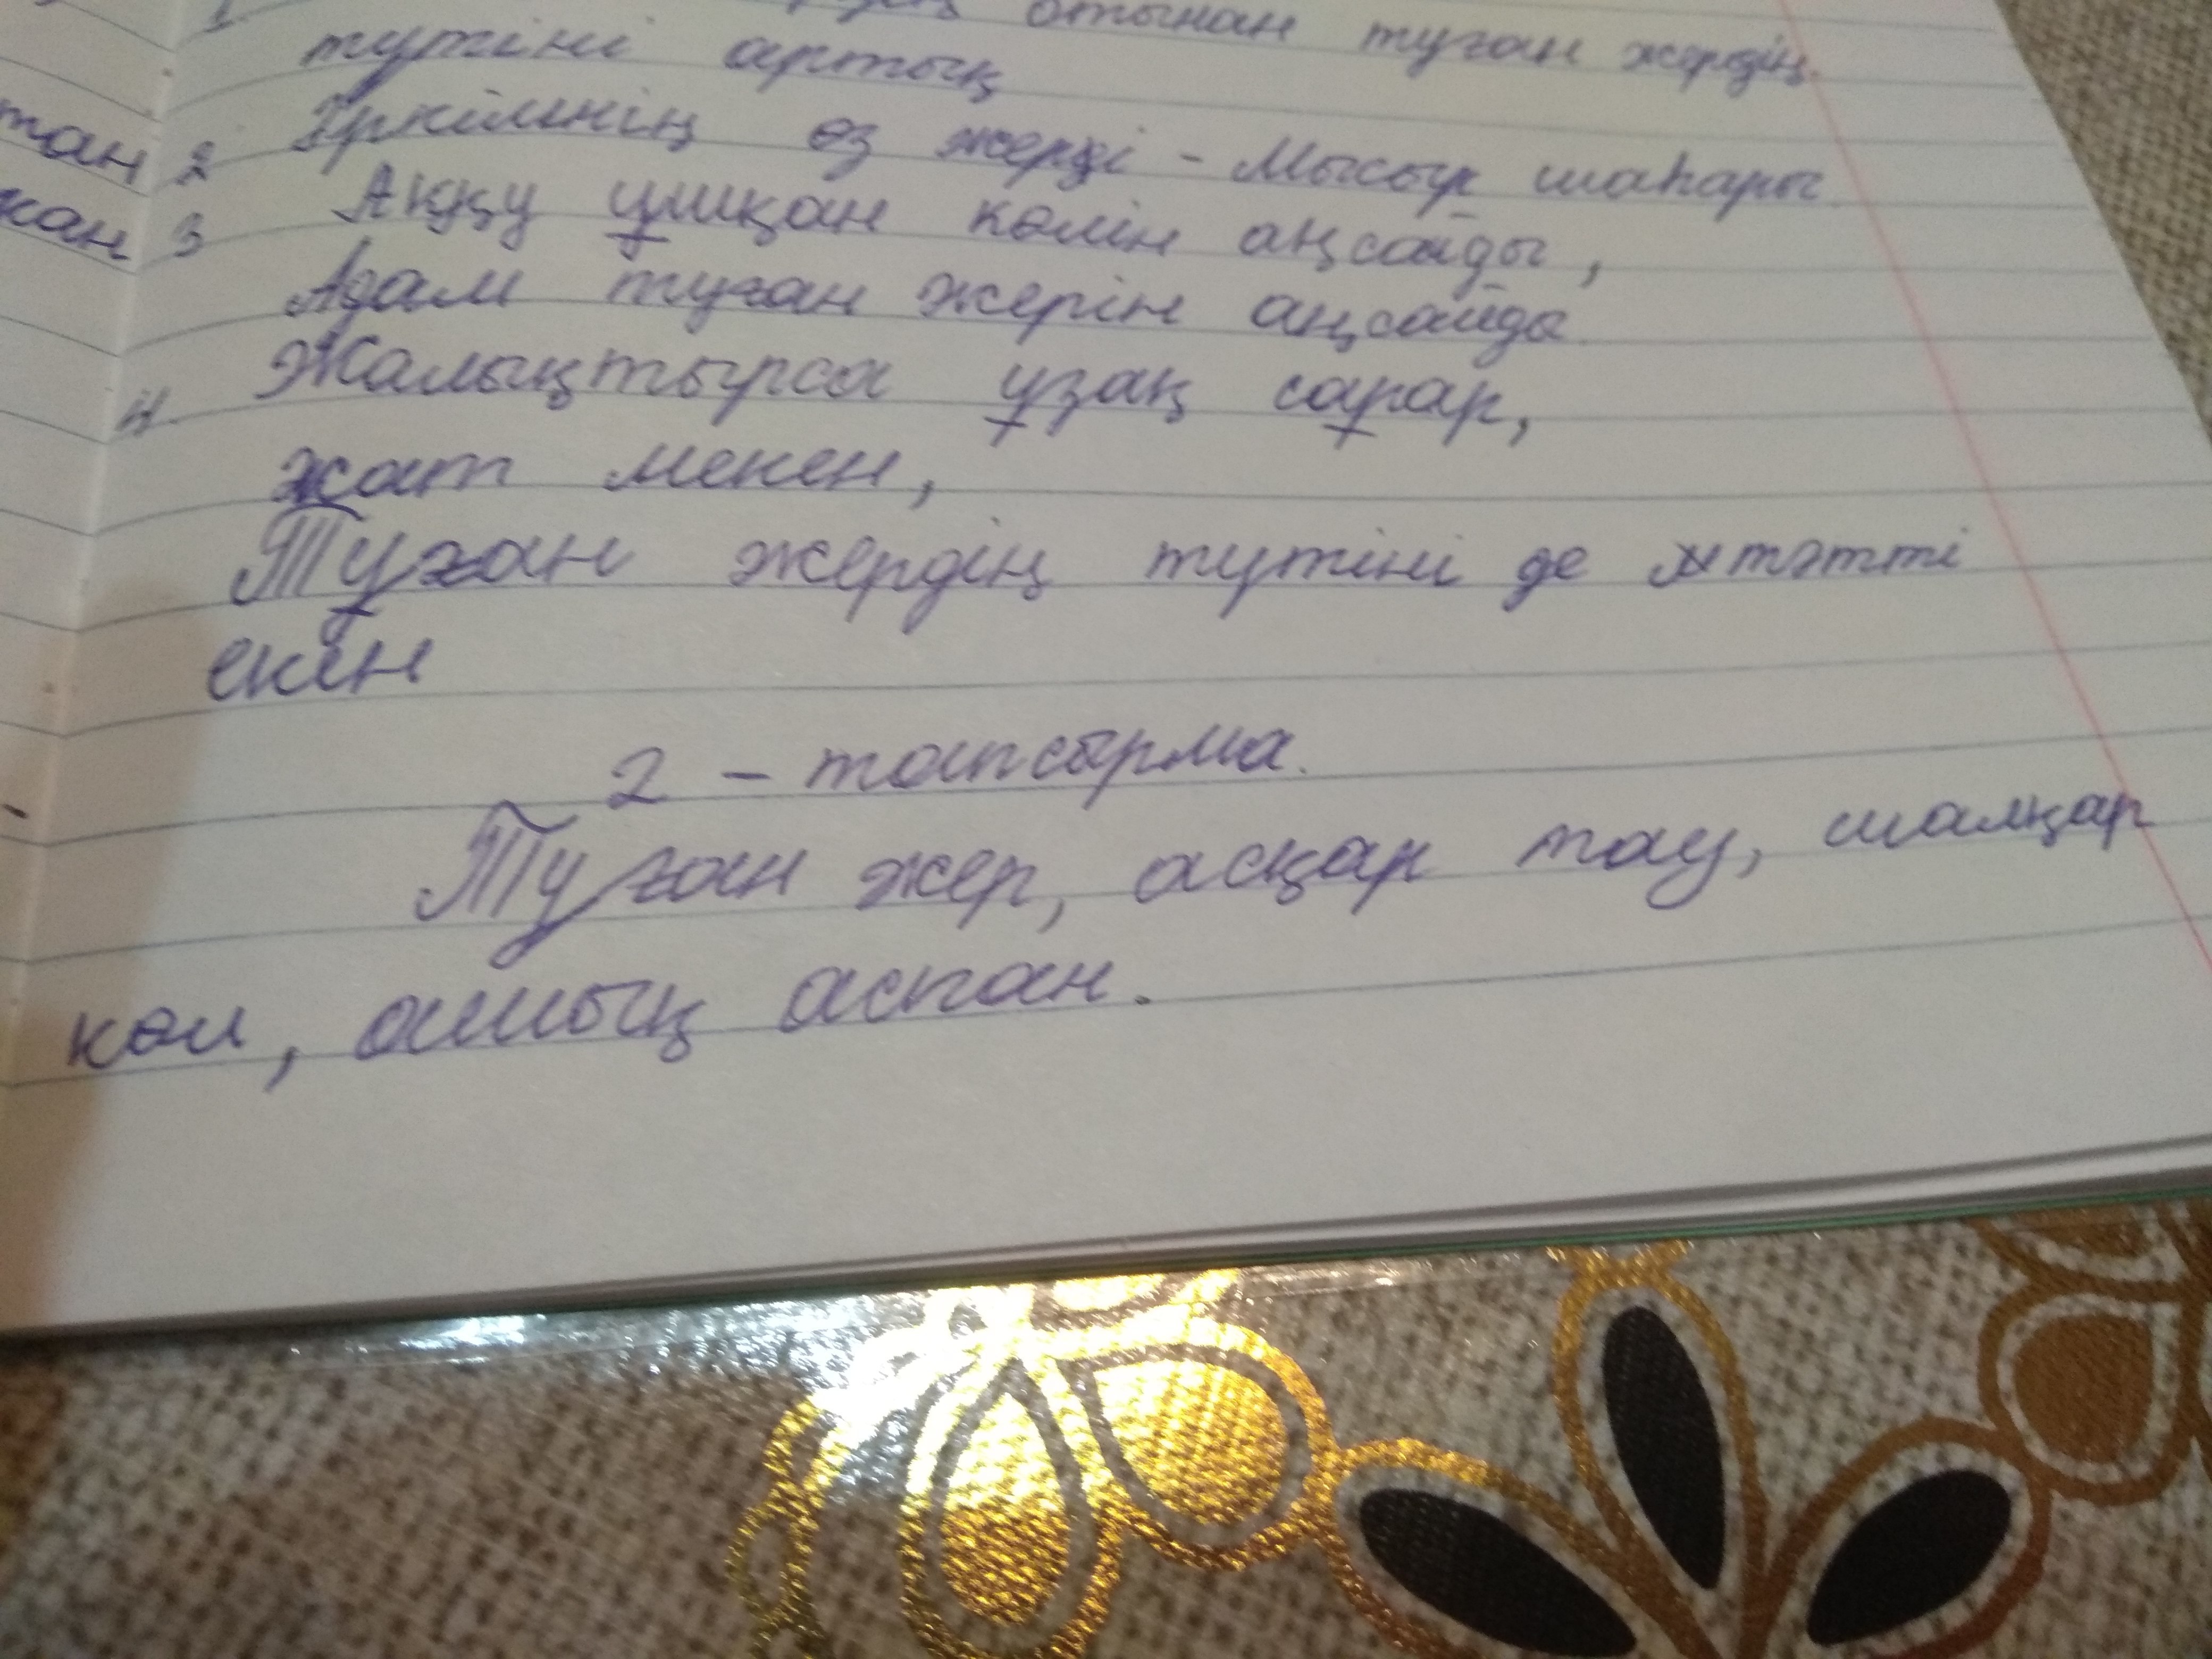 отынан туған жердің
түтіні артық
тан 2 Іркімнің өз жерді - Мысыр шаһары
кан 3 Аққу ұшқан көлін аңсайды,
Адам туған жерін аңсайда
4. Жалықтырса ұзақ сапар,
жат мекен,
Туған жердің түтіні де тәтті
екен
2 - тапсырма.
Туған жер, асқар тау, шалқар
көл, ашық аспан.